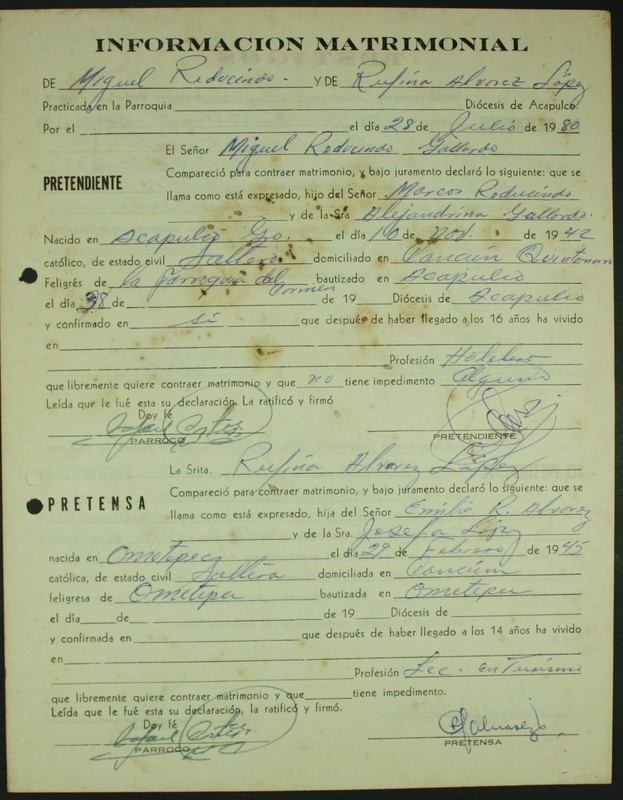 INFORMACION MATRIMONIAL
DE Miguel Reducindo. Y DE Rufina Alvarez López
Practicada en la Parroquia Diócesis de Acapulco.
Por el el día 28 de Julio de 1980
El Señor Miguel Reducindo Gallardo
PRETENDIENTE
Compareció para contraer matrimonio, y bajo juramento declaró lo siguiente: que se
llama como está expresado, hijo del Señor Marcos Reducindo
y de la Sra Alejandrina Gallardo.
Nacido en Acapulco Gro. el día 10 de Nov. de 1942
católico, de estado civil Soltero domiciliado en Cancún Quintanaroo
Feligrés de la Parroquia del Carmen bautizado en Acapulco
el día 38 de de 19 Diócesis de Acapulco
y confirmado en si que después de haber llegado a los 16 años ha vivido
en
Profesión Hotelero
que libremente quiere contraer matrimonio y que no tiene impedimento Alguno
Leída que le fué esta su declaración. La ratificó y firmó
Doy fé
PARROCO
PRETENDIENTE
La Srita. Rufina Alvarez López
PRETENSA
Compareció para contraer matrimonio, y bajo juramento declaró lo siguiente: que se
llama como está expresado, hija del Señor Emilio R. Alvarez
y de la Sra. Josefa López
nacida en Ometepec el día 29 de Febrero de 1945
católica, de estado civil Soltera domiciliada en Cancún
feligresa de Ometepec bautizada en Ometepec
el día de de 19 Diócesis de
y confirmada en que después de haber llegado a los 14 años ha vivido
en
Profesión Lec. en Turismo
que libremente quiere contraer matrimonio y que tiene impedimento.
Leída que le fué esta su declaración, la ratificó y firmó.
Doy fé
PARROCO
PRETENSA